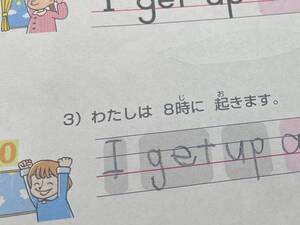 I get up
3) わたしは 8時に 起きます。
I get up a